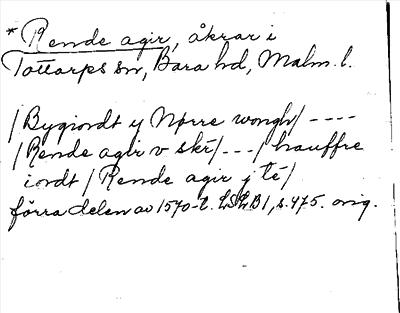 * Rende agir, åkrar i
Tottarps sn, Bara hd, Malm. l.
/Bygiordt y Nørre wongh/ ----
/Rende agir v skr/ --- / hauffre
iordt / Rende agir j té/
förra delen av 1570-t. LSLB1, s. 475. orig.